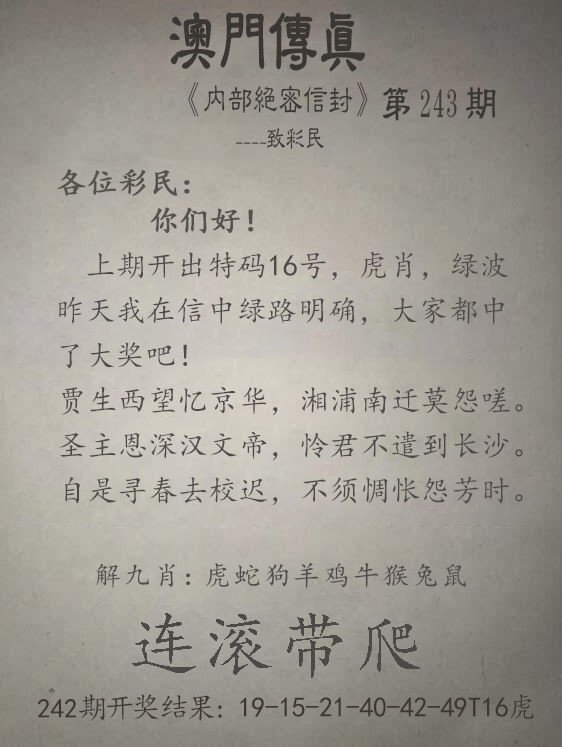 澳門傳真
《内部絕密信封》第243期
----致彩民
各位彩民：
你们好！
上期开出特码16号，虎肖，绿波
昨天我在信中绿路明确，大家都中
了大奖吧！
贾生西望忆京华，湘浦南迁莫怨嗟。
圣主恩深汉文帝，怜君不遣到长沙。
自是寻春去校迟，不须惆怅怨芳时。
解九肖：虎蛇狗羊鸡牛猴兔鼠
连滚带爬
242期开奖结果：19-15-21-40-42-49T16虎